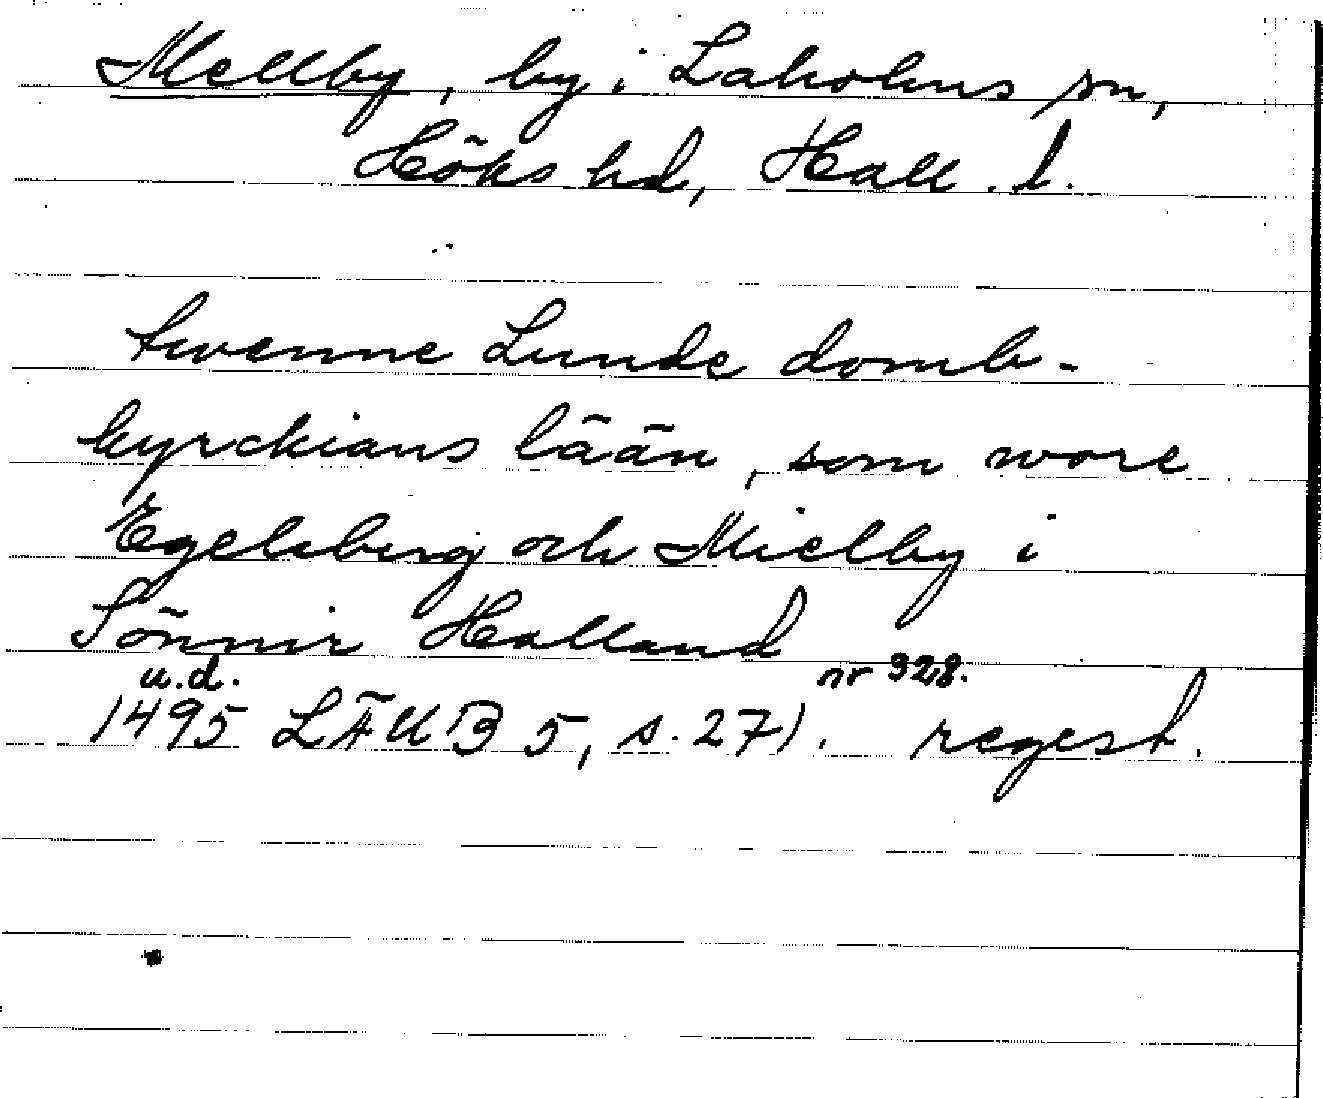 Mellby, by i Laholms sn,
Höks hd, Hall. l.
twenne Lunde domb-
kyrckians lään, som wore
Egelsberg och Mielby i
Sönnir Halland
u.d. nr 328.
1495 LÄUB 5, s. 27). regest.